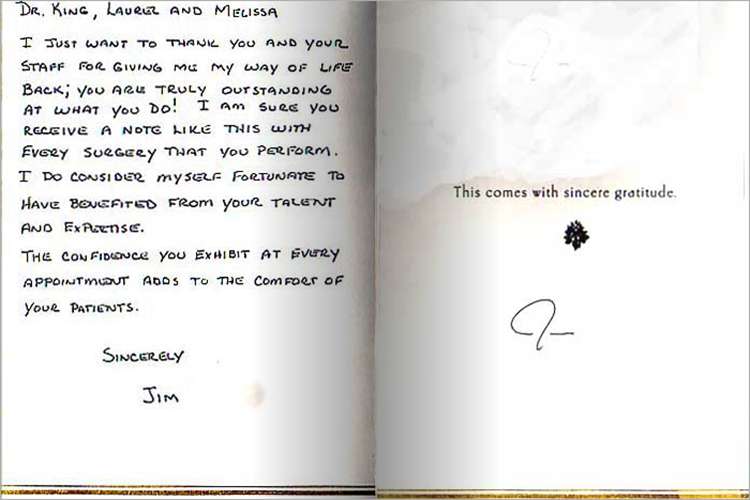 Dr. King, Laurel and Melissa
I just want to thank you and your
staff for giving me my way of life
back; you are truly outstanding
at what you do! I am sure you
receive a note like this with
every surgery that you perform.
I do consider myself fortunate to
have benefited from your talent
and expertise.
The confidence you exhibit at every
appointment adds to the comfort of
your patients.
Sincerely
Jim
This comes with sincere gratitude.